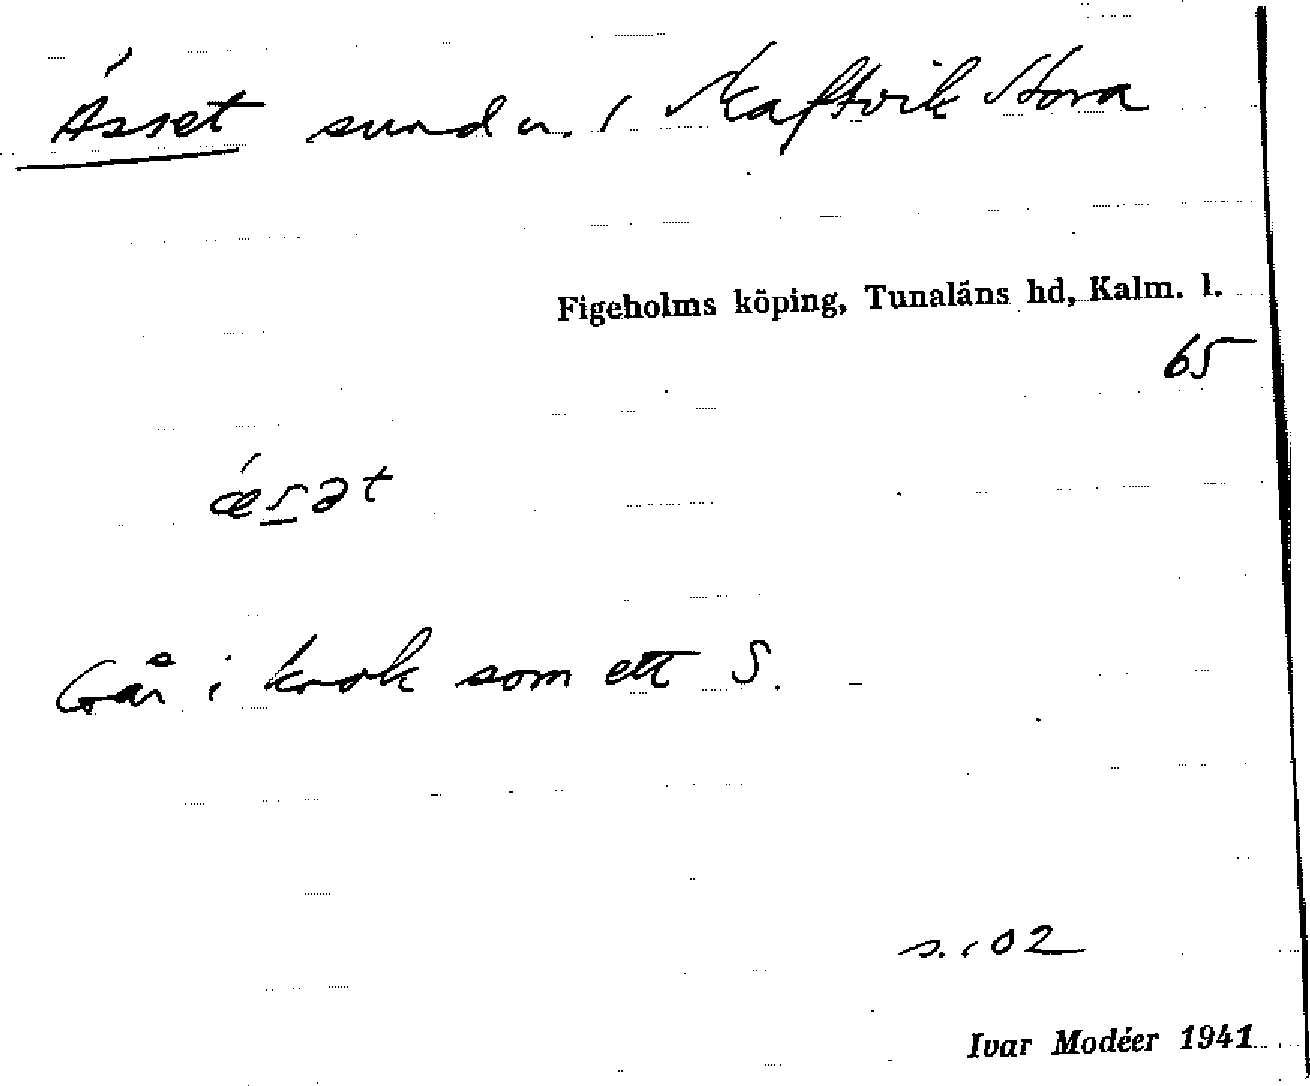 Ásset sund u. / Skaftvik Stora
Figeholms köping, Tunaläns hd, Kalm. l.
65
ǽs̲ət
Går i krok som ett S.
s. 102
Ivar Modéer 1941